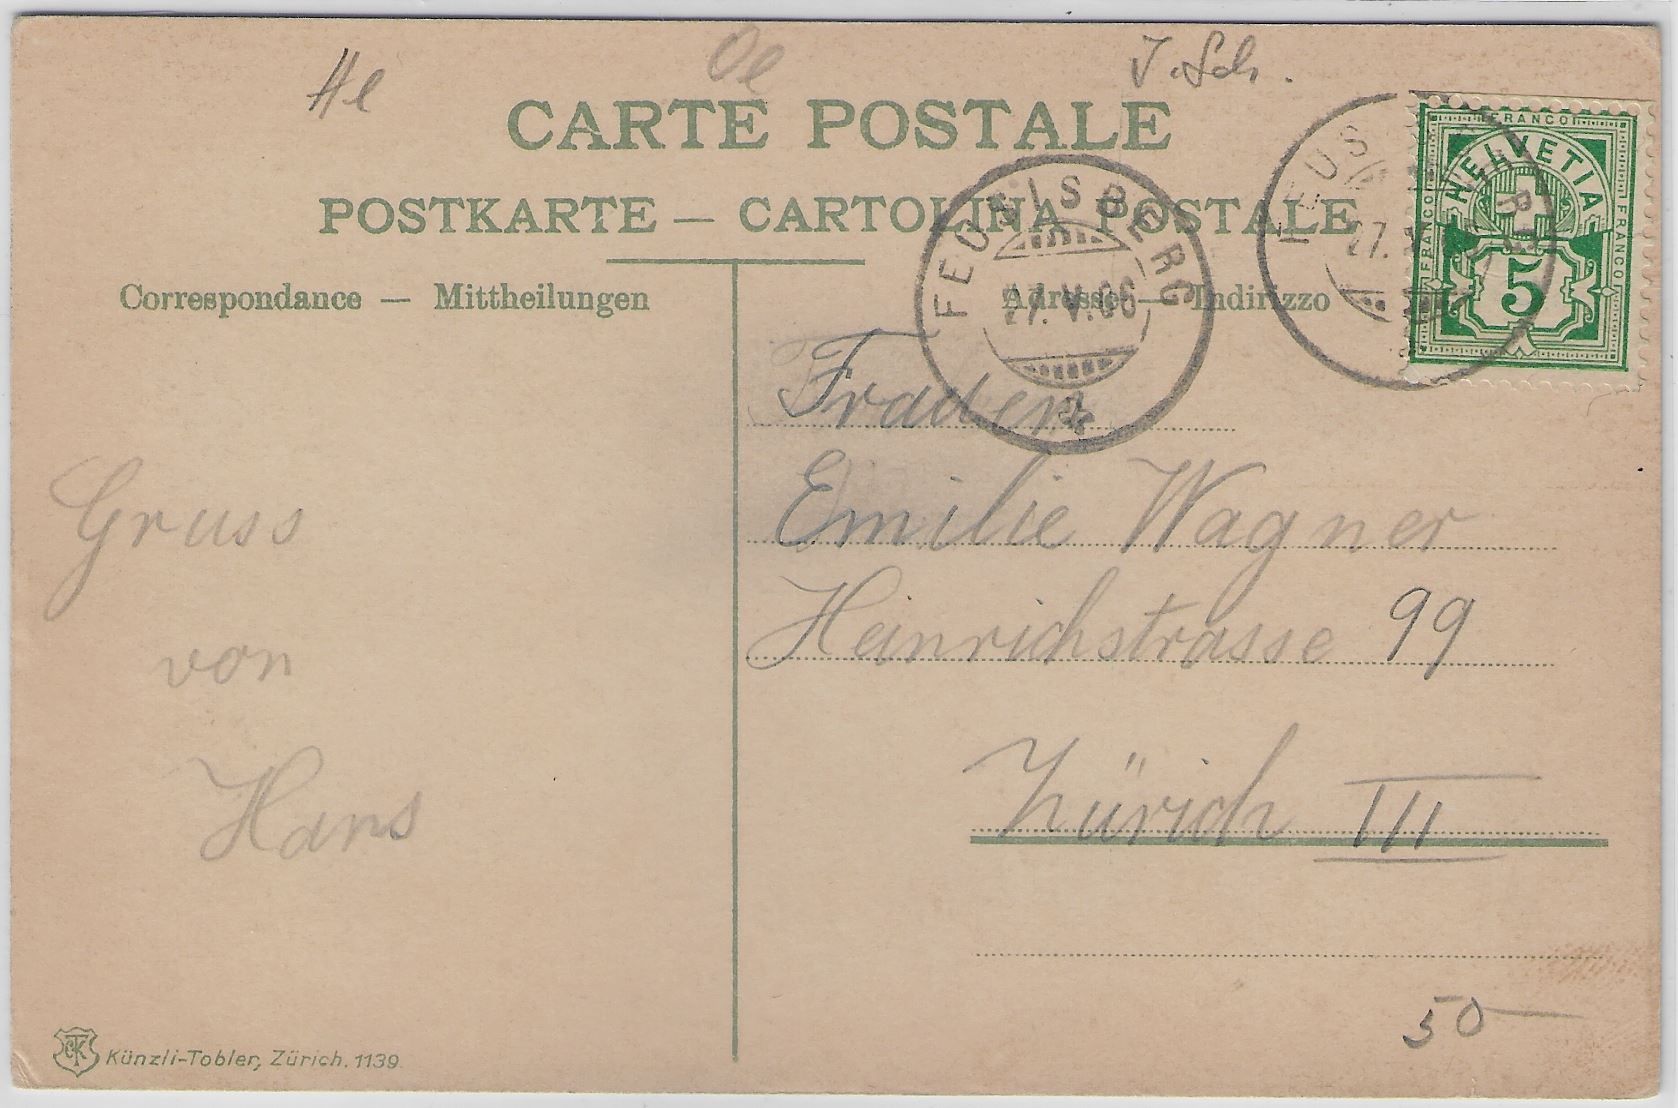 He
De
J. Sch.
CARTE POSTALE
POSTKARTE — CARTOLINA POSTALE
Correspondance — Mittheilungen
Adresse — Indirizzo
FEUSISBERG
27. V. 06
27.
FRANCO
HELVETIA
FRANCO
FRANCO
5
Emilie Wagner
Heinrichstrasse 99
Zürich III
Gruss
von
Hans
50
Künzli-Tobler, Zürich. 1139